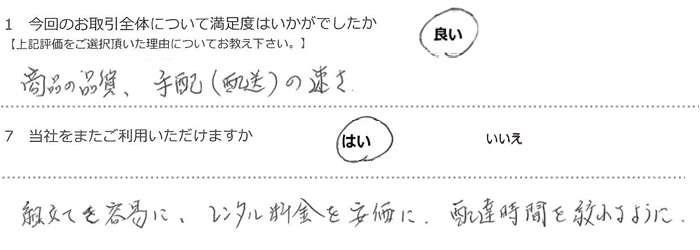 1 今回のお取引全体について満足度はいかがでしたか 良い
【上記評価をご選択頂いた理由についてお教え下さい。】
商品の品質、手配(配送)の速さ.
7 当社をまたご利用いただけますか はい いいえ
組立てを容易に、レンタル料金を安価に. 配達時間を絞れるように.